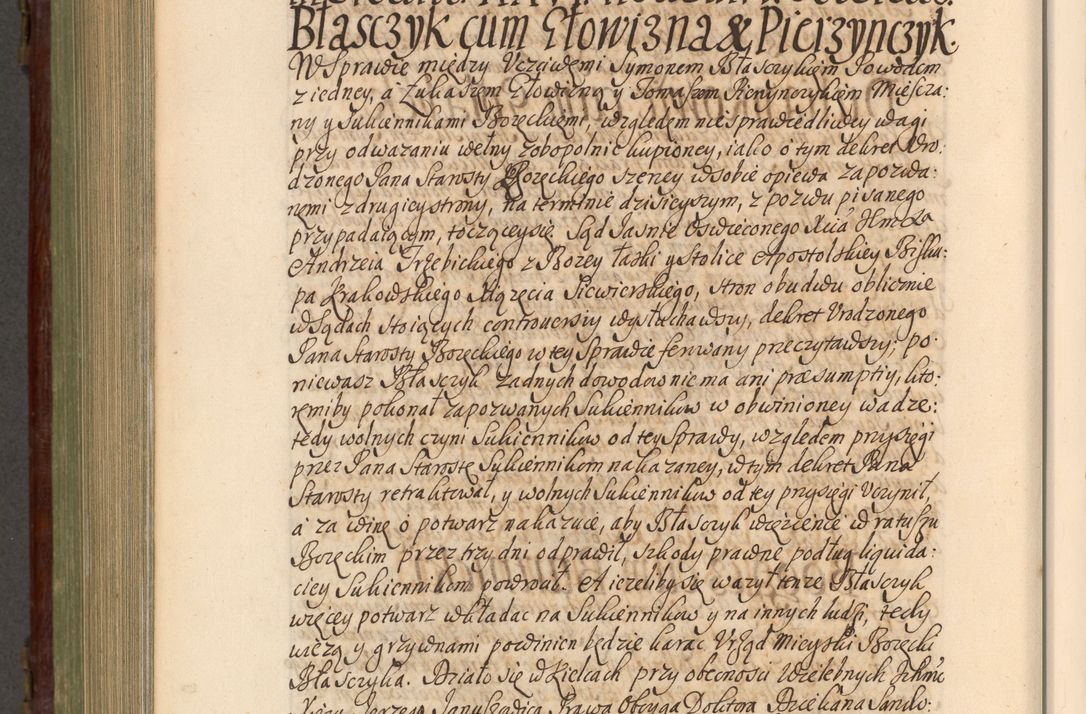 Błasczyk cum Głowizna & Pierzynczyk
W Sprawie między Uczciwemi Symonem Błasczykiem Powodem
z iedney, a Łukaszem Głowizną y Tomaszem Pierzynczykiem Miescza:
ny y Sukiennikami Borzęckiemi, względem niesprawiedliwey wagi
przy odwazaniu wełny zobopolnie kupioney, iako o tym dekret Uro:
dzonego Pana Starosty Borzęckiego szerzey w sobie opiewa zapozwa:
nemi z drugiey strony, na terminie dzisieyszym, z pozwu pisanego
przypadaiącym, toczącey się. Sąd Jasnie Oswieconego Xcia Jmci Xa
Andrzeia Trzebickiego z Bozey łaski y Stolice Apostolskiey Bisku:
pa Krakowskiego Xiązęcia Siewierskiego, stron obudwu oblicznie
w Sądach stoiących controuersiy wysłuchawszy, dekret Urodzonego
Pana Starosty Borzęckiego w tey sprawie ferowany przeczytawszy; po:
niewasz Błasczyk zadnych dowodow nie ma ani præsumptiy, kto:
remiby pokonał zapozwanych Sukiennikow w obwinioney wadze:
tedy wolnych czyni Sukiennikow od tey sprawy, względem przysięgi
przez Pana Starostę Sukiennikom nakazaney, w tym dekret Pana
Starosty retraktował, y wolnych Sukiennikow od tey przysięgi Uczynił,
a za winę o potwarz nakazuie, aby Błasczyk więzienie w ratuszu
Borzęckim przez trzy dni odprawił, szkody prawne podług liquida:
ciey Sukiennikom powrocił. A iezeliby się wazył tenze Błasczyk
więcey potwarz wkładac na Sukiennikow y na innych ludzi, tedy
wiezą y grzywnami powinien będzie karac Urząd Mieyski Borzęcki
Błasczyka. Działo się w Kielcach przy obecnosci Wielebnych
Xięzy Jerzego Januszowica Prawa Oboyga Doktora Dziekana Sando: